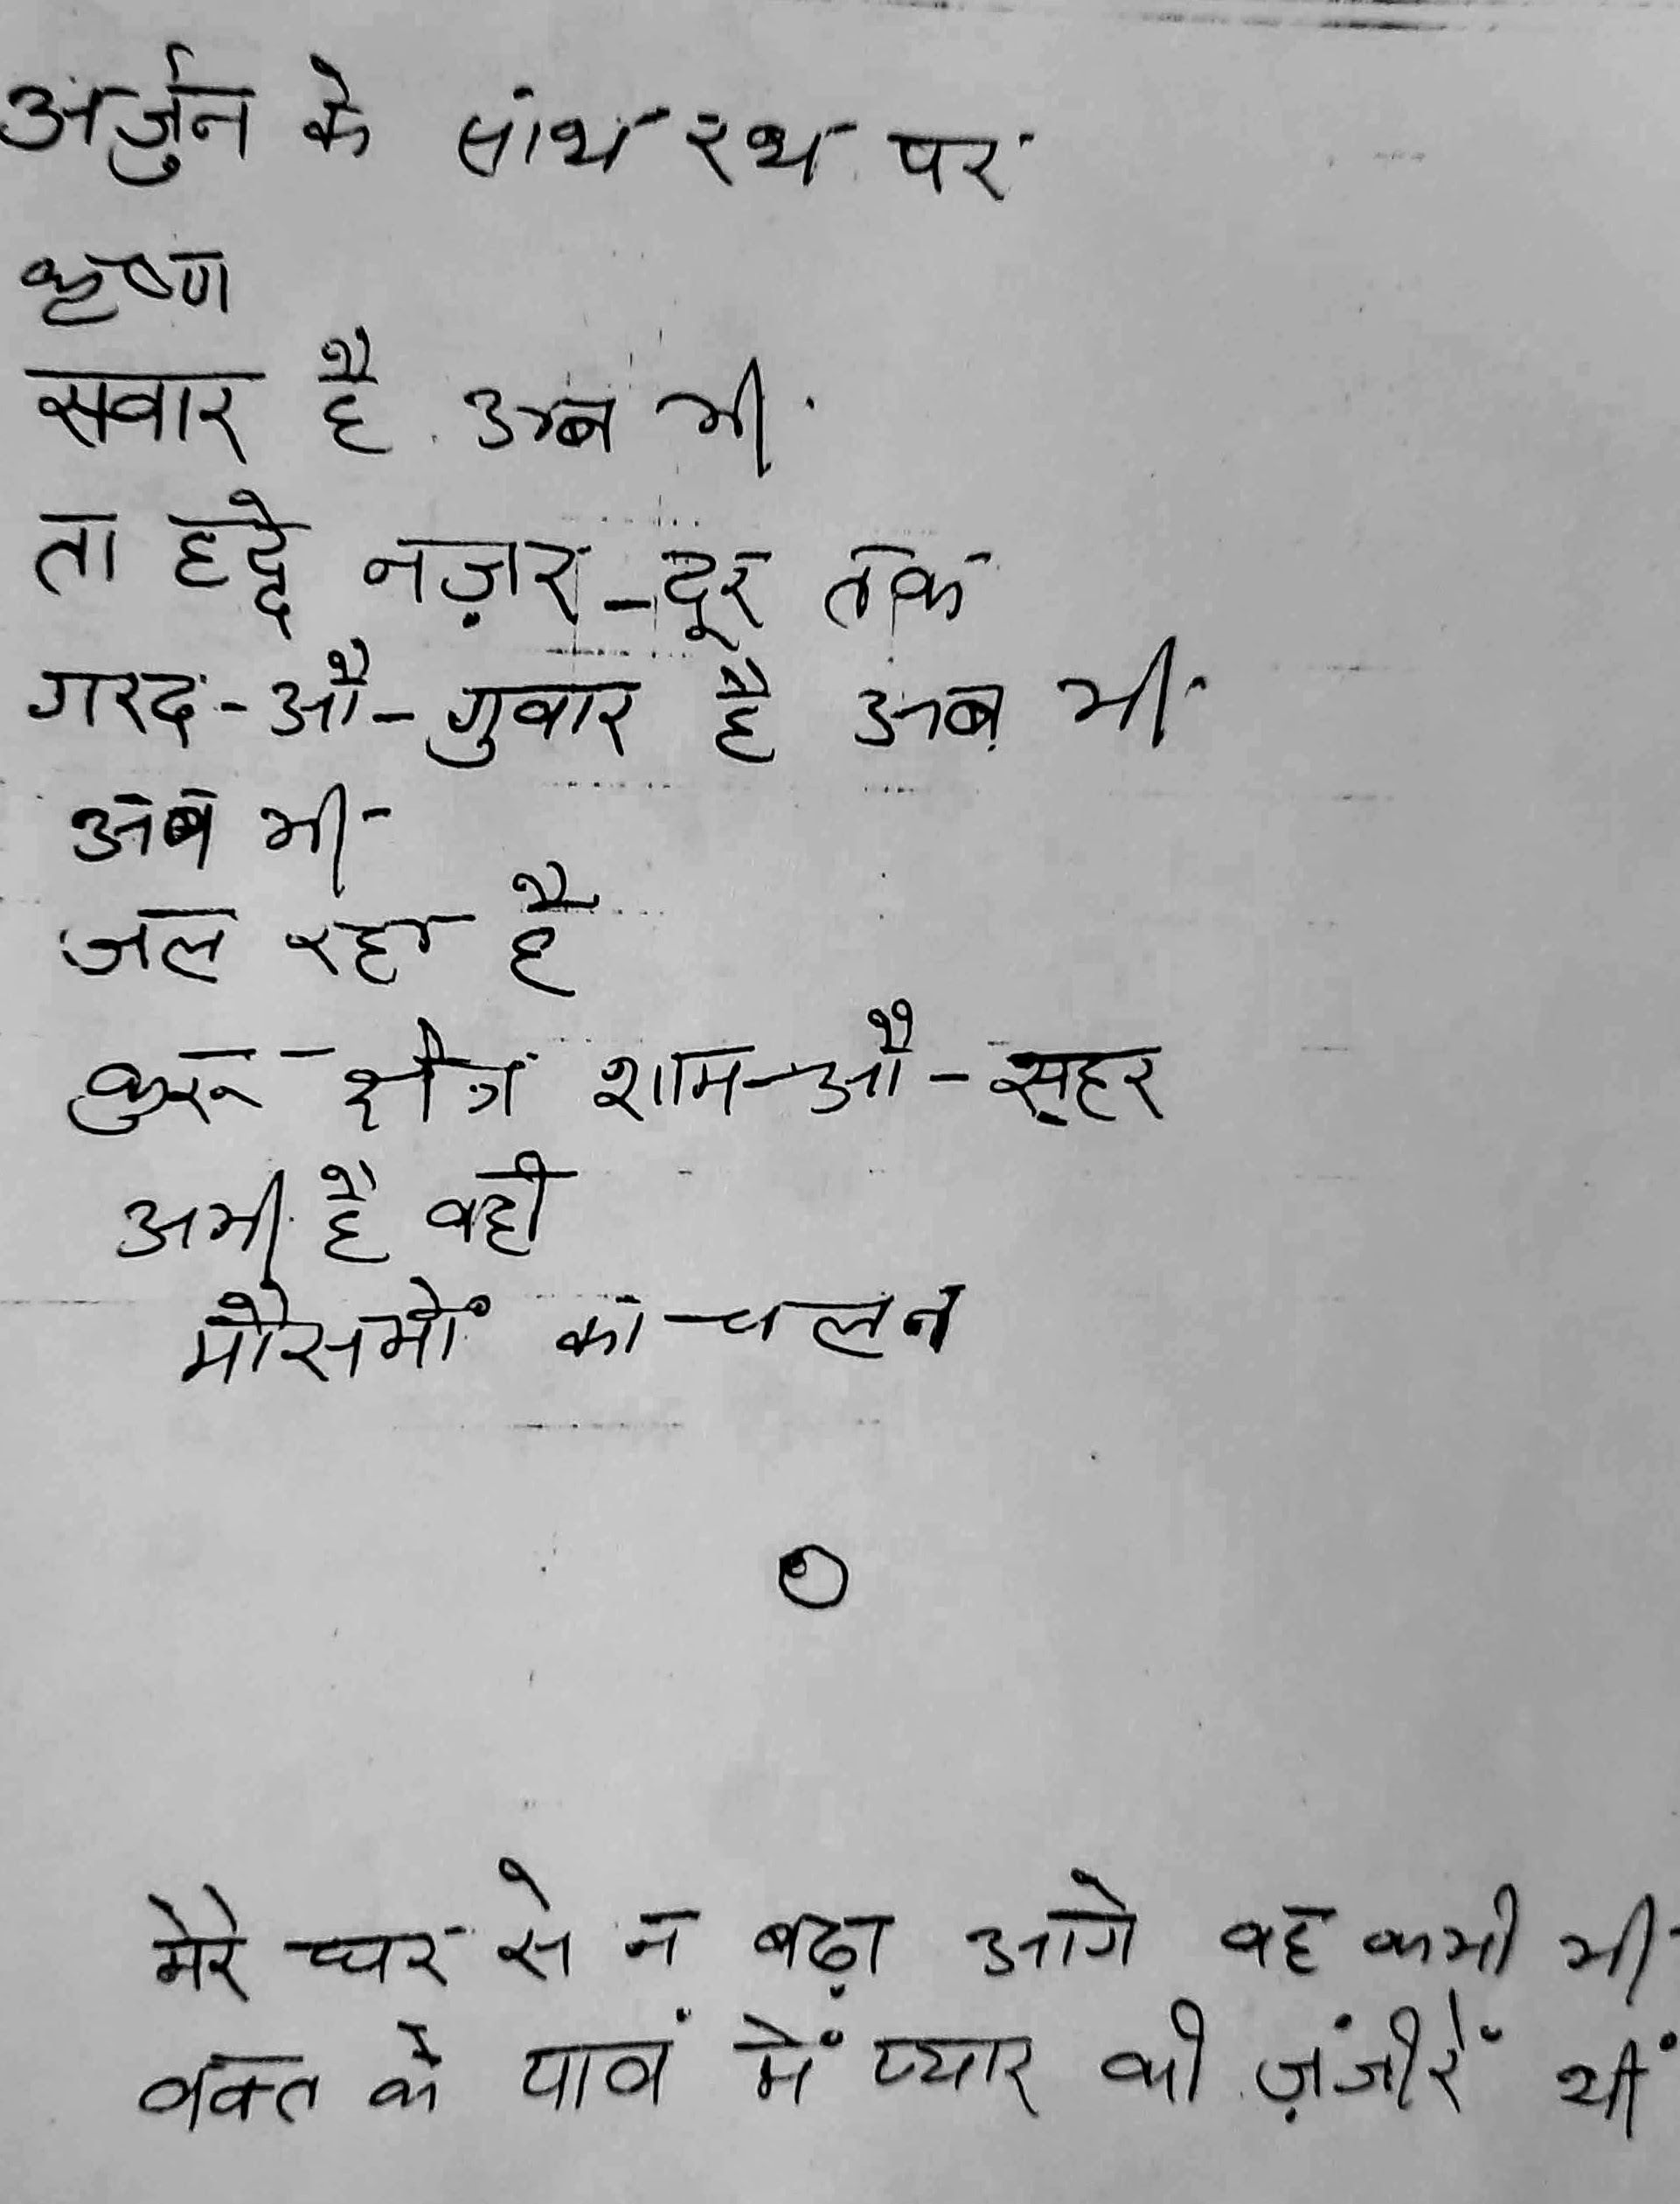 अर्जुन के साथ रथ पर
कृष्ण
सवार है अब भी
ता हद्दे नज़र - दूर तक
गरद - औ - गुवार है अब भी
अब भी
जल रहा है
कुरू क्षेत्र शाम - औ - सहर
अभी है वही
मौसमों का चलन
मेरे घर से न बढ़ा आगे वह कभी भी
वक्त के पावं में प्यार की ज़ंजीरें थीं